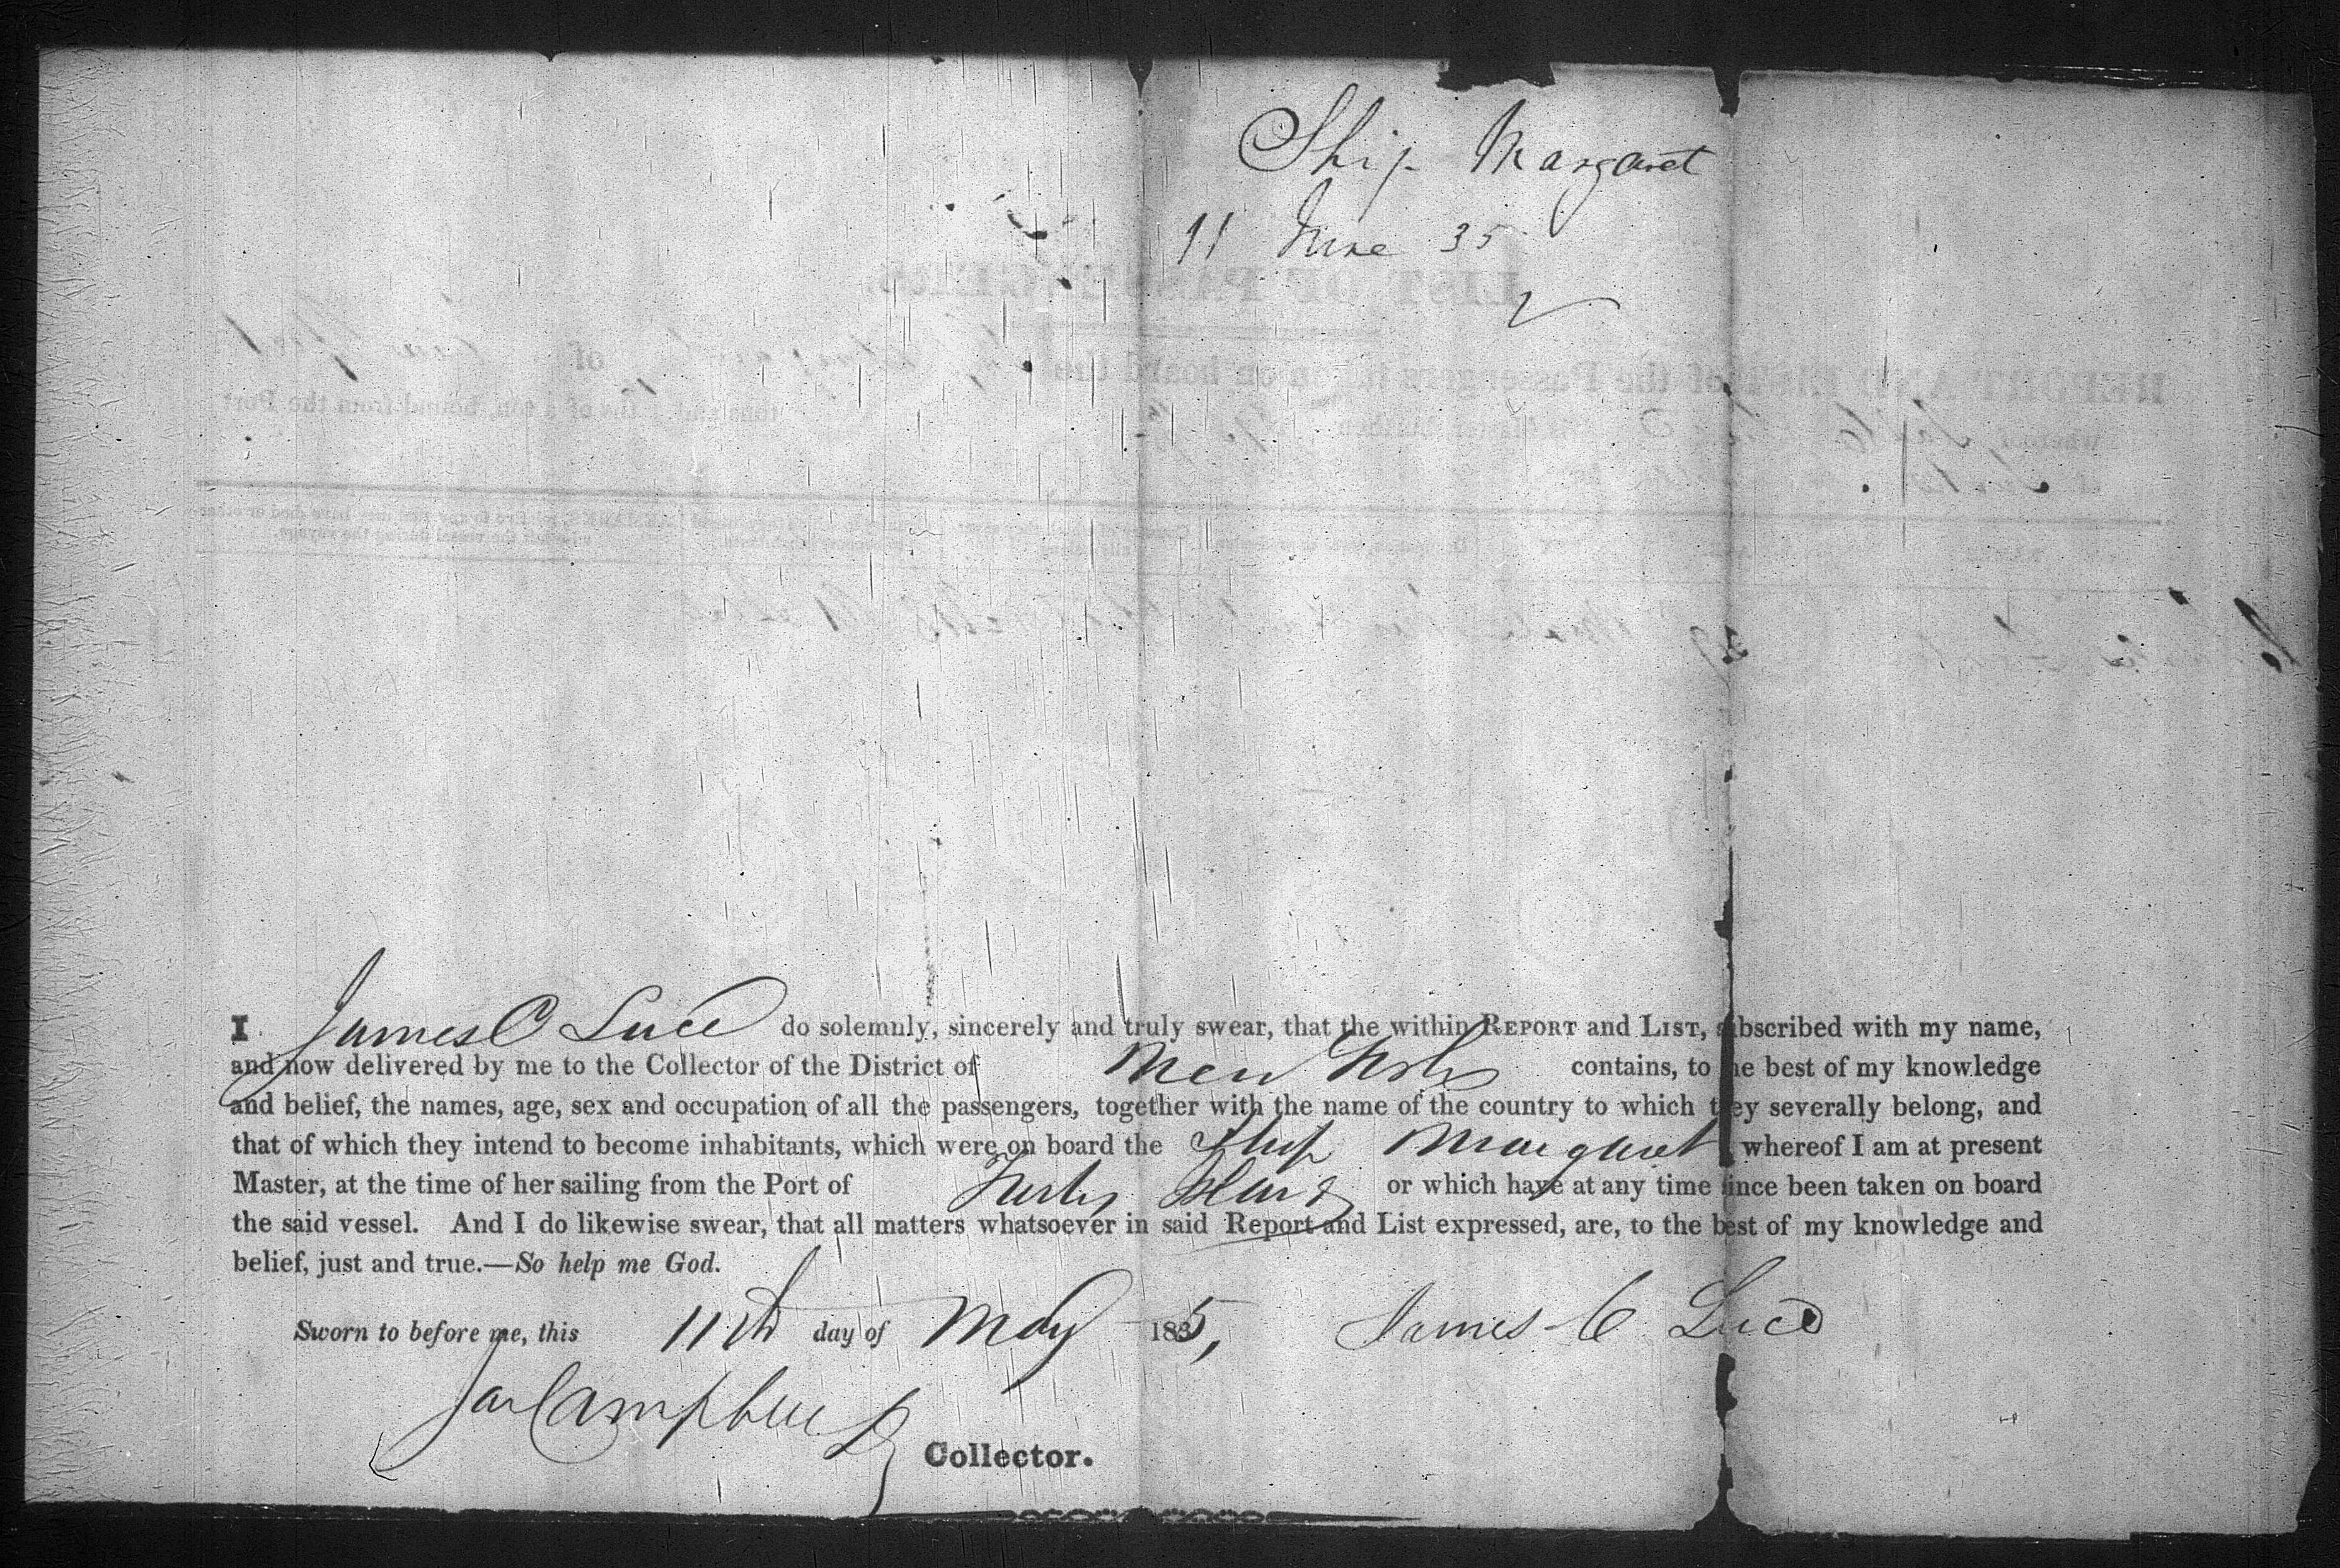 Ship Margaret
11 June 35
I James C Luce do solemnly, sincerely and truly swear, that the within REPORT and LIST, subscribed with my name,
and now delivered by me to the Collector of the District of New York contains, to the best of my knowledge
and belief, the names, age, sex and occupation of all the passengers, together with the name of the country to which they severally belong, and
that of which they intend to become inhabitants, which were on board the Ship Margaret whereof I am at present
Master, at the time of her sailing from the Port of Turks Island or which have at any time since been taken on board
the said vessel. And I do likewise swear, that all matters whatsoever in said Report and List expressed, are, to the best of my knowledge and
belief, just and true.—So help me God.
Sworn to before me, this 11th day of May 1835, James C Luce
Campbell
Collector.